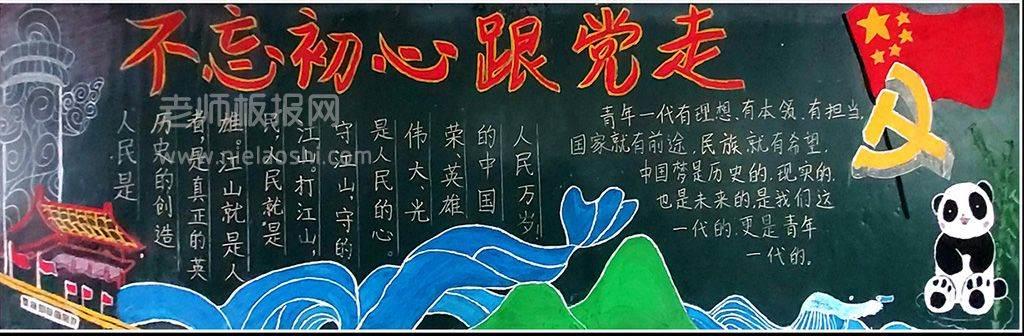 不忘初心跟党走
老师板报网
www.pielaoshi.com
人民是
历史的创造
者,是真正的英
雄。江山就是人
民,人民就是
江山。打江山,
守江山,守的
是人民的心。
伟大、光
荣、英雄
的中国
人民万岁!
青年一代有理想、有本领、有担当,
国家就有前途,民族就有希望,
中国梦是历史的、现实的,
也是未来的,是我们这
一代的,更是青年
一代的。